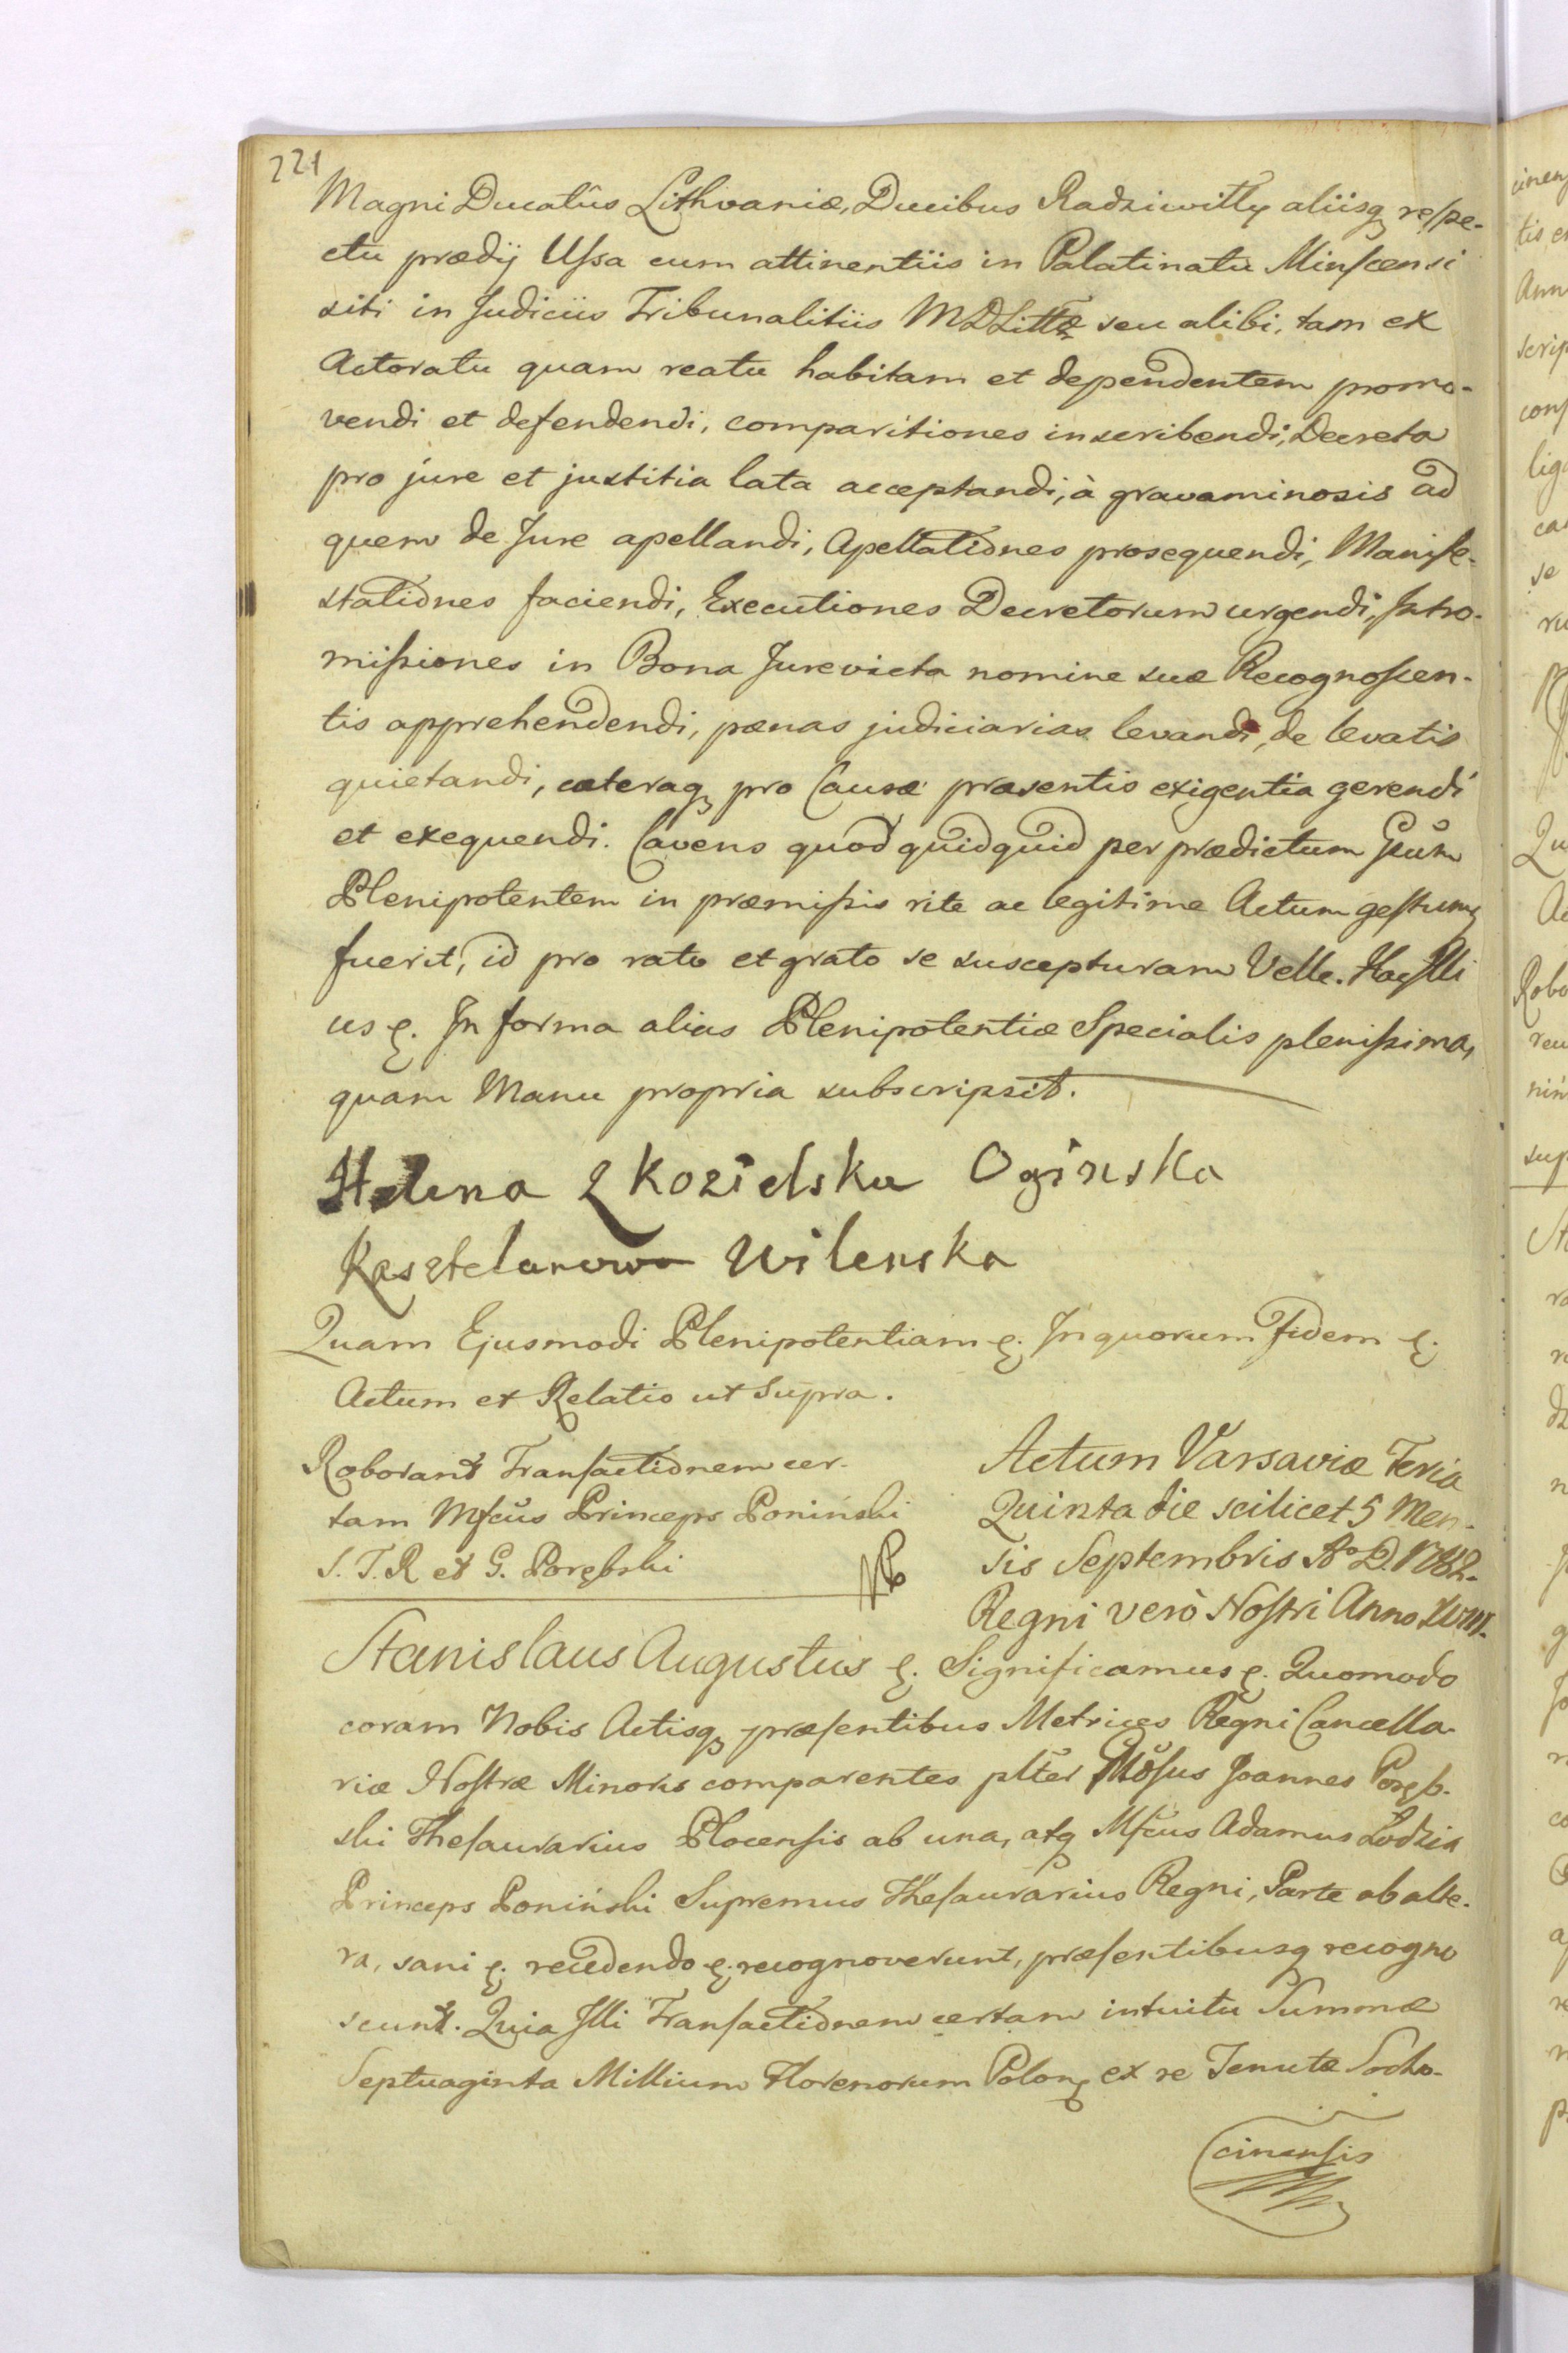 221
Magni Ducatûs Lithvaniæ, Ducibus Radziwiłły aliisq respe-
ctu prædij Ussa cum attinentiis in Palatinatu Minscensi
siti in Judiciis Tribunalitiis MDLittæ seu alibi, tam ex
Actoratu quam reatu habitam et dependentem promo-
vendi et defendendi, comparitiones inscribendi, Decreta
pro jure et justitia lata acceptandi, à gravaminosis ad
quem de Jure apellandi, Apellationes prosequendi, Manife-
stationes faciendi, Executiones Decretorum urgendi, Intro-
missiones in Bona Jurevicta nomine suæ Recognoscen-
tis apprehendendi, pænas judiciarias levandi, de levatis
quietandi, cæteraq pro Causæ præsentis exigentia gerendi
et exequendi. Cavens quod quidquid per prædictum Gsum
Plenipotentem in præmissis rite ac legitime Actum gestumq
fuerit, id pro rato et grato se suscepturam Velle. Hac Illi
us ę. In forma alias Plenipotentiæ Specialis plenissima,
quam Manu propria subscripsit.
Helena z Kozielsku Ogińska
Kasztelanowa Wilenska
Quam Ejusmodi Plenipotentiam ę. In quorum Fidem ę.
Actum et Relatio ut Supra.
Roborant Transactionem cer-
tam Mfcus Princeps Poniński
S. T. R et G. Porębski
Actum Varsaviæ Feria
Quinta die scilicet 5 Men-
sis Septembris Ao D. 1782.
Regni verò Nostri Anno XVIII.
Stanislaus Augustus ę. Significamus ę. Quomodo
coram Nobis Actisq præsentibus Metrices Regni Cancella-
riæ Nostræ Minoris comparentes plter Gnosus Joannes Poręb-
ski Thesaurarius Plocensis ab una, atq Mfcus Adamus Łodzia
Princeps Poniński Supremus Thesaurarius Regni, Parte ab alte-
ra, sani ę. recedendo ę. recognoverunt, præsentibusq recogno
scunt. Quia Illi Transactionem certam intuitu Summæ
Septuaginta Millium Florenorum Polonq ex re Tenutæ Socha-
cinensis